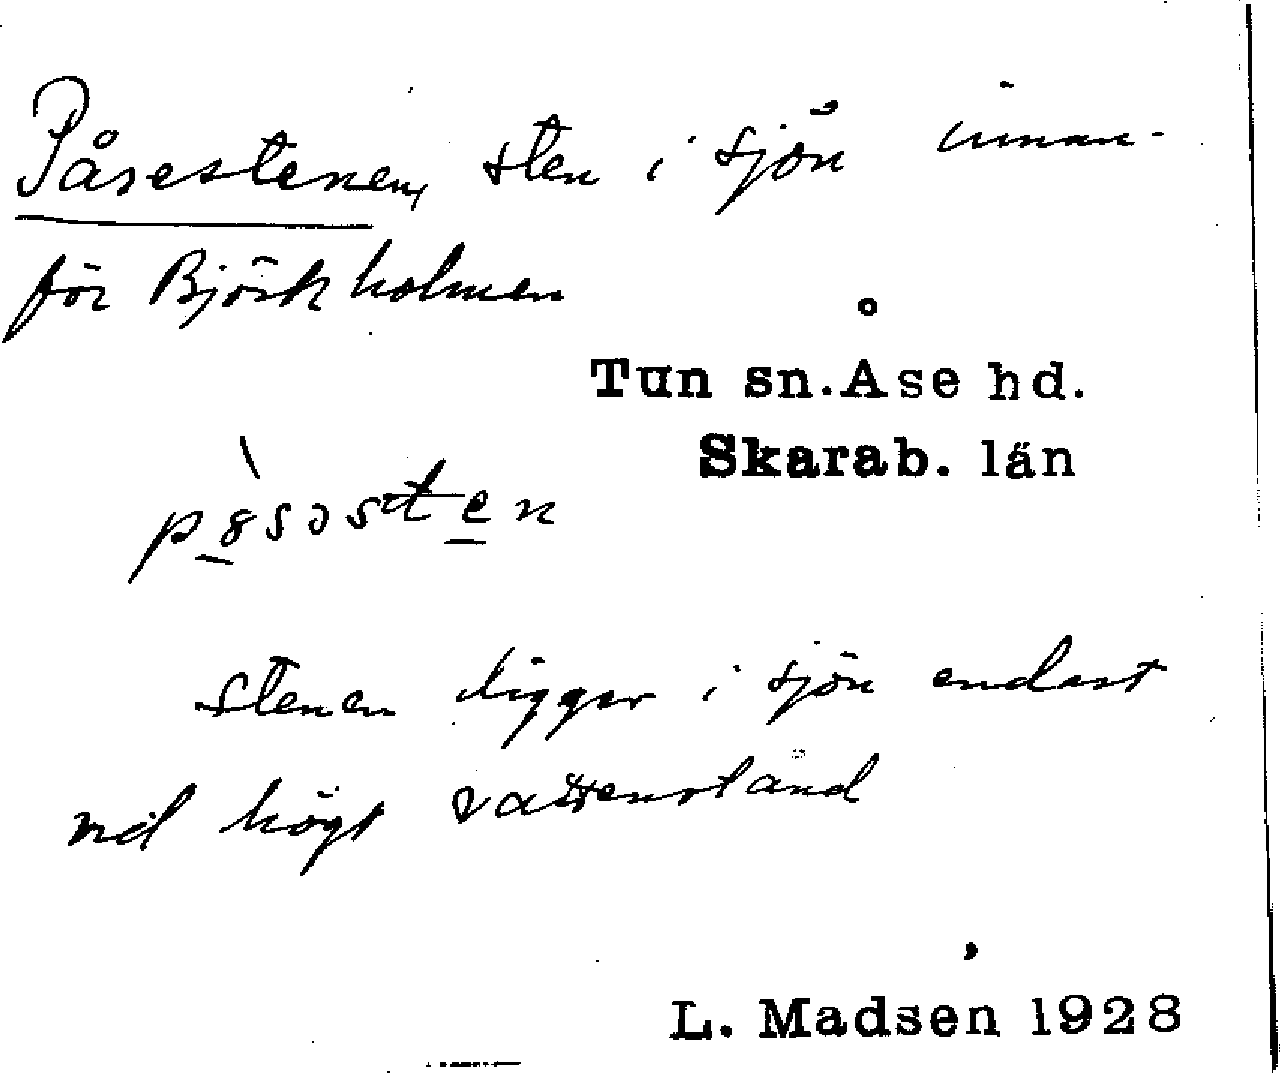 Påsestenen, sten i sjön innan-
för Björkholmen
Tun sn. Åse hd.
Skarab. län
stenen ligger i sjön endast
vid högt vattenstånd
L. Madsen 1928